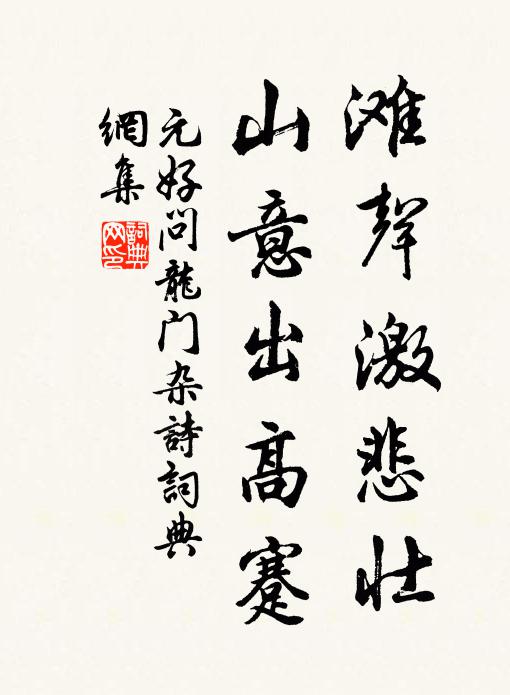 滩聲激悲壮
山意出高蹇
元好问龍门杂詩詞典
網集
詞典网印